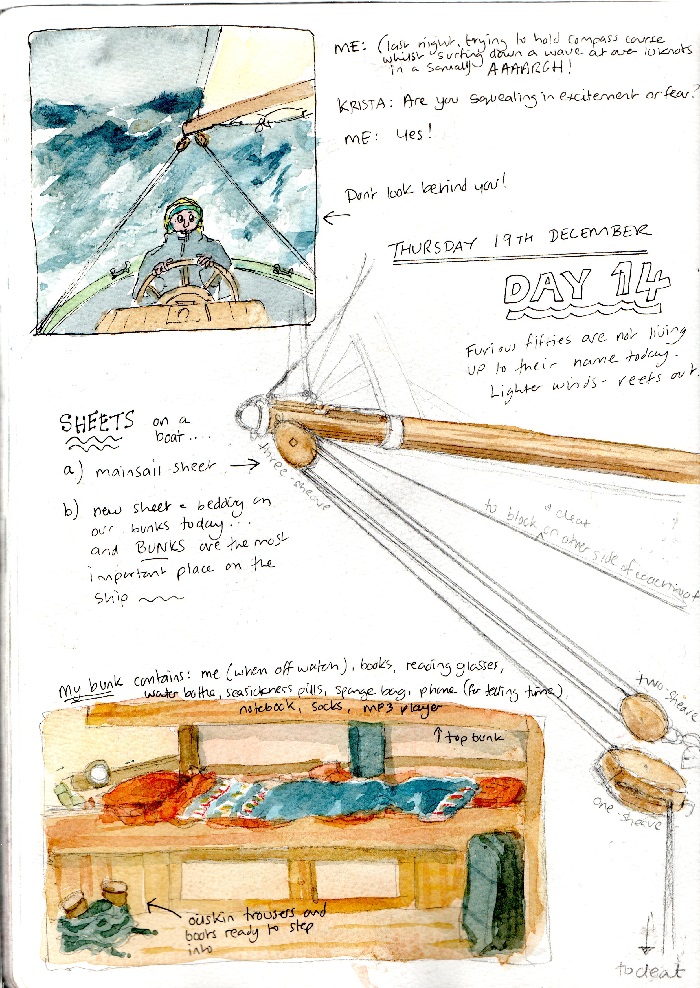 ME: (last night, trying to hold compass course
whilst surfing down a wave at over 10 knots
in a squall) AAAARGH!
KRISTA: Are you squealing in excitement or fear?
ME: Yes!
Don't look behind you!
THURSDAY 19TH DECEMBER
DAY 14
Furious fifties are not living
up to their name today.
Lighter winds - reefs out.
SHEETS on a
boat....
a) mainsail sheet
three-sheave
b) new sheet & bedding on
our bunks today...
and BUNKS are the most
important place on the
ship
& cleat
to block on other side of
two-sheave
one-sheave
to cleat
My bunk contains: me (when off watch), books, reading glasses,
water bottle, seasickness pills, sponge bag, phone (for telling time)
notebook, socks, MP3 player
top bunk
oilskin trousers and
boots ready to step
into